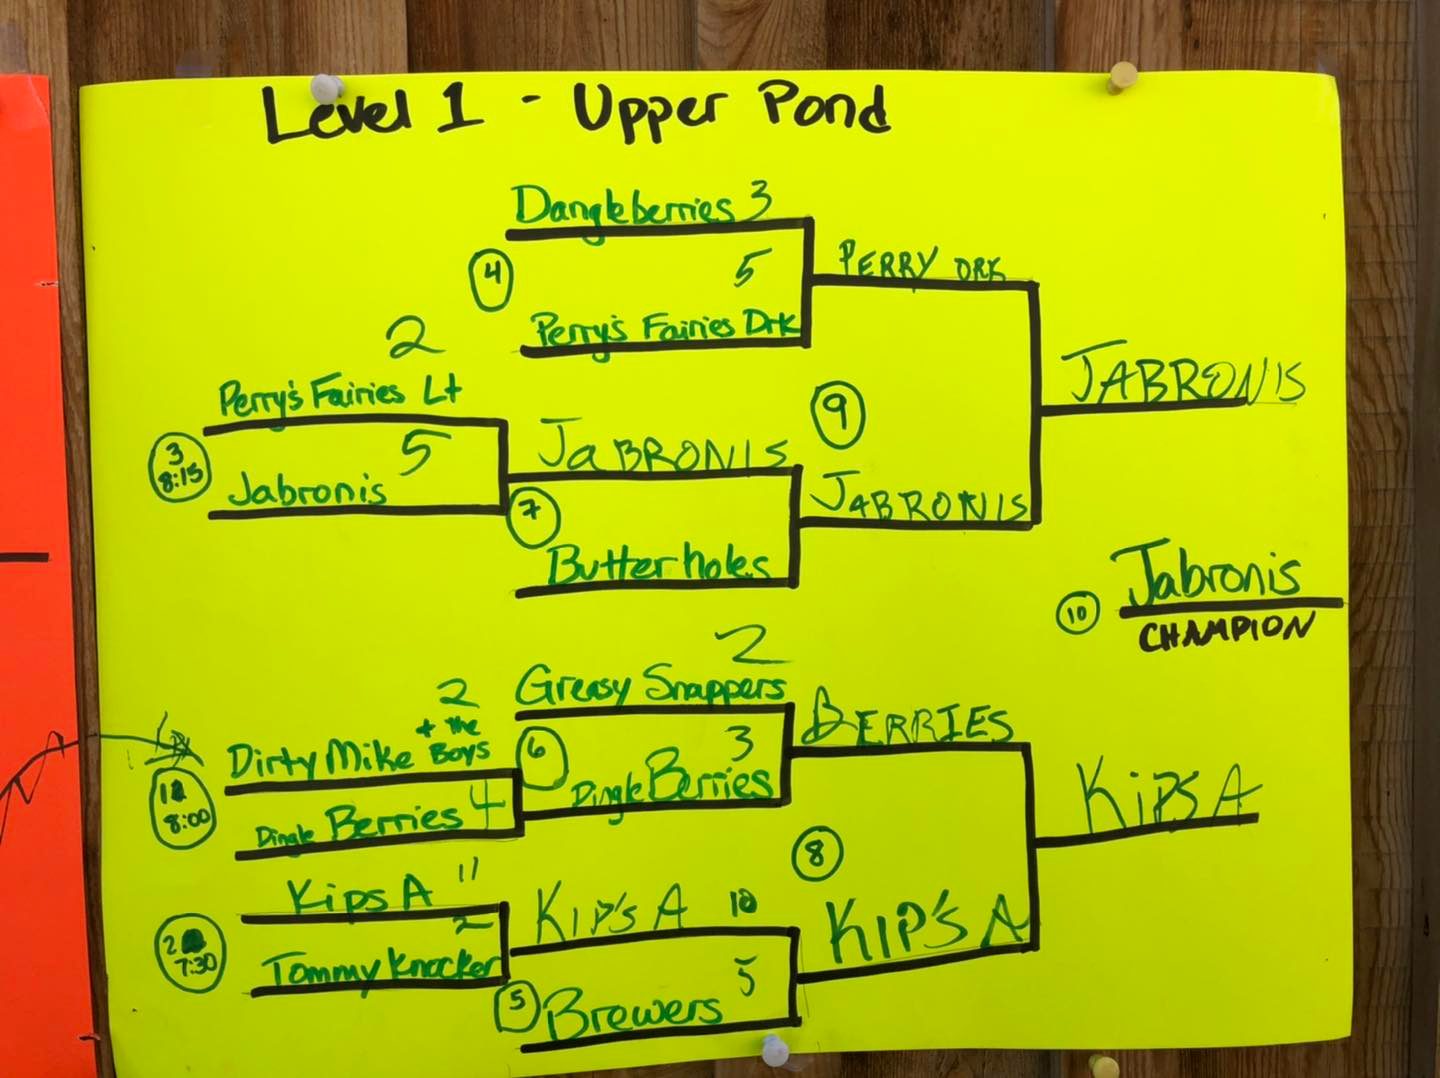 Level 1 - Upper Pond
Dangleberries 3
4
5
PERRY DRK
Perry's Fairies Drk
2
Perry's Fairies Lt
JABRONIS
9
3
8:15
5
JaBRONIS
Jabronis
7
JABRONIS
Butterholes
Jabronis
10
CHAMPION
2
Greasy Snappers
2
+ the
Dirty Mike Boys
6
3
BERRIES
Dingle Berries
8:00
Dingle Berries 4
KiPS A
8
Kips A 11
KIP'S A 10
KIP'S A
2
2
7:30
Tommyknocker
5
5
Brewers